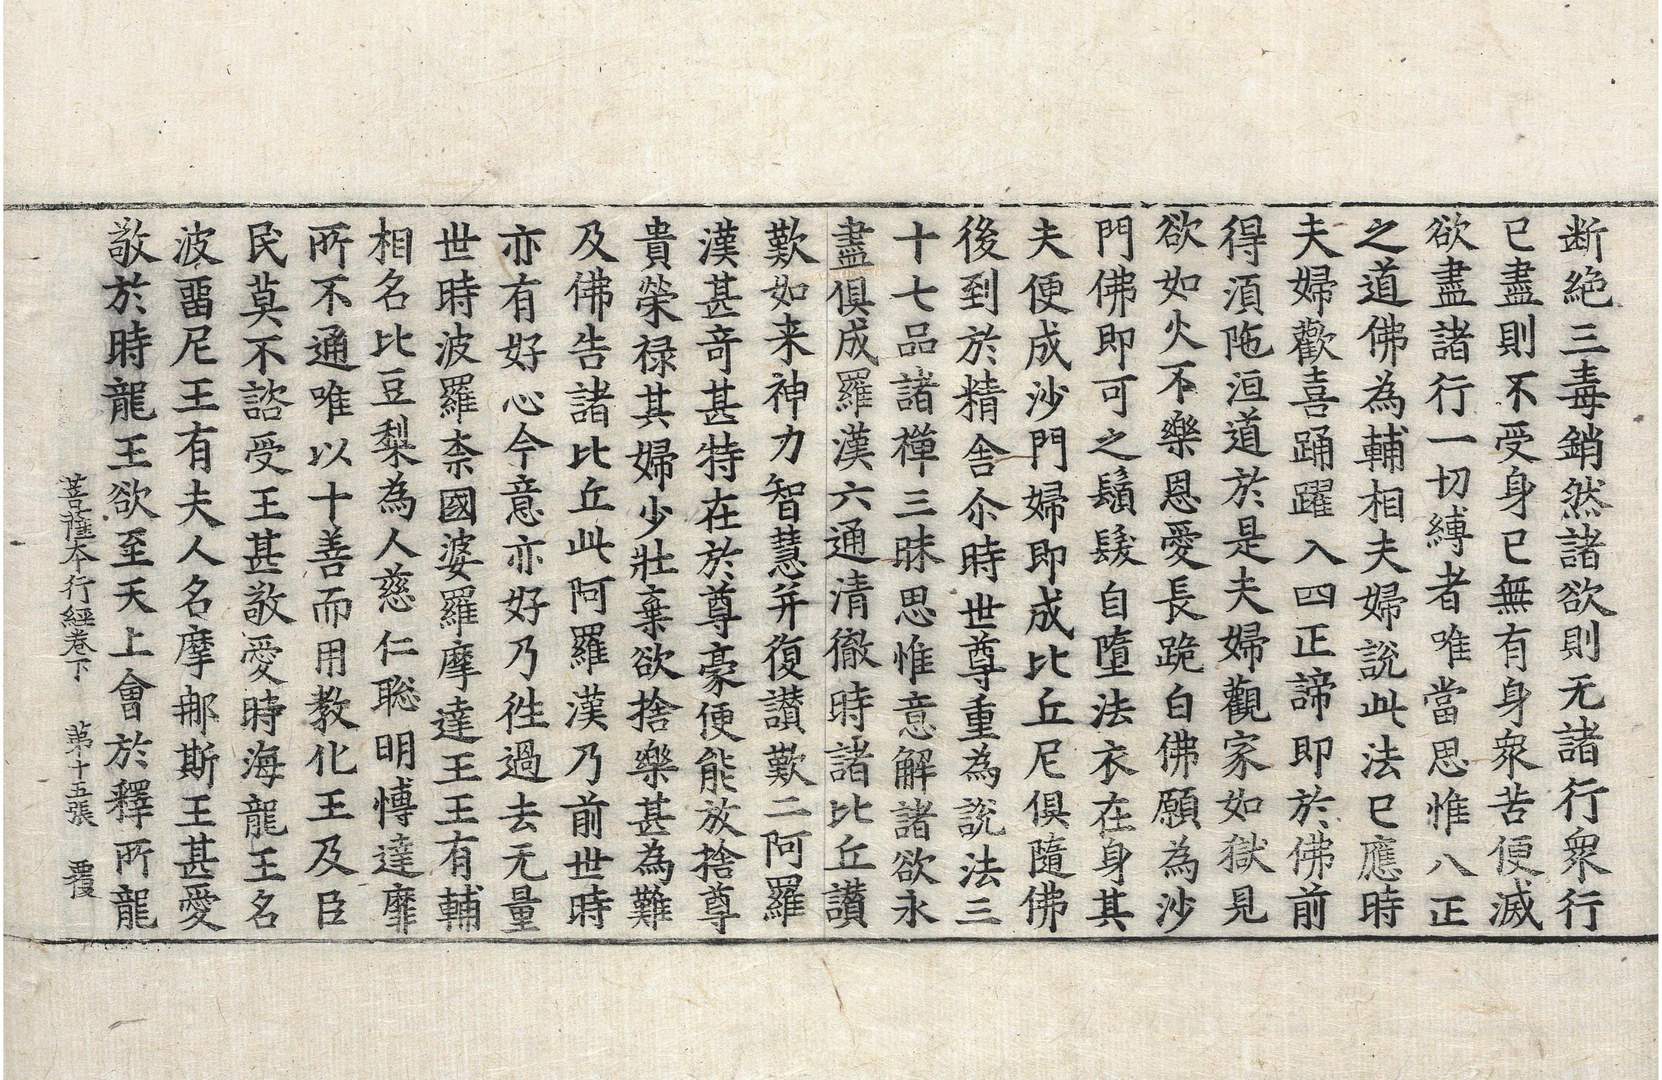 断絶三毒銷然諸欲則无諸行衆行
已盡則不受身已無有身衆苦便滅
欲盡諸行一切縛者唯當思惟八正
之道佛為輔相夫婦說此法已應時
夫婦歡喜踊躍入四正諦即於佛前
得湏陁洹道於是夫婦觀家如獄見
欲如火不樂恩愛長跪白佛願為沙
門佛即可之鬚髮自墮法衣在身其
夫便成沙門婦即成比丘尼俱隨佛
後到於精舍尒時世尊重為說法三
十七品諸禪三昧思惟意解諸欲永
盡俱成羅漢六通清徹時諸比丘讃
歎如来神力智慧并復讃歎二阿羅
漢甚竒甚特在於尊豪便能放捨尊
貴榮禄其婦少壯棄欲捨樂甚為難
及佛告諸比丘此阿羅漢乃前世時
亦有好心今意亦好乃徃過去无量
世時波羅柰國婆羅摩達王王有輔
相名比豆梨為人慈仁聡明愽達靡
所不通唯以十善而用教化王及臣
民莫不諮受王甚敬愛時海龍王名
波留尼王有夫人名摩那斯王甚愛
敬於時龍王欲至天上會於釋所龍
菩薩本行經卷下 第十五張 覆